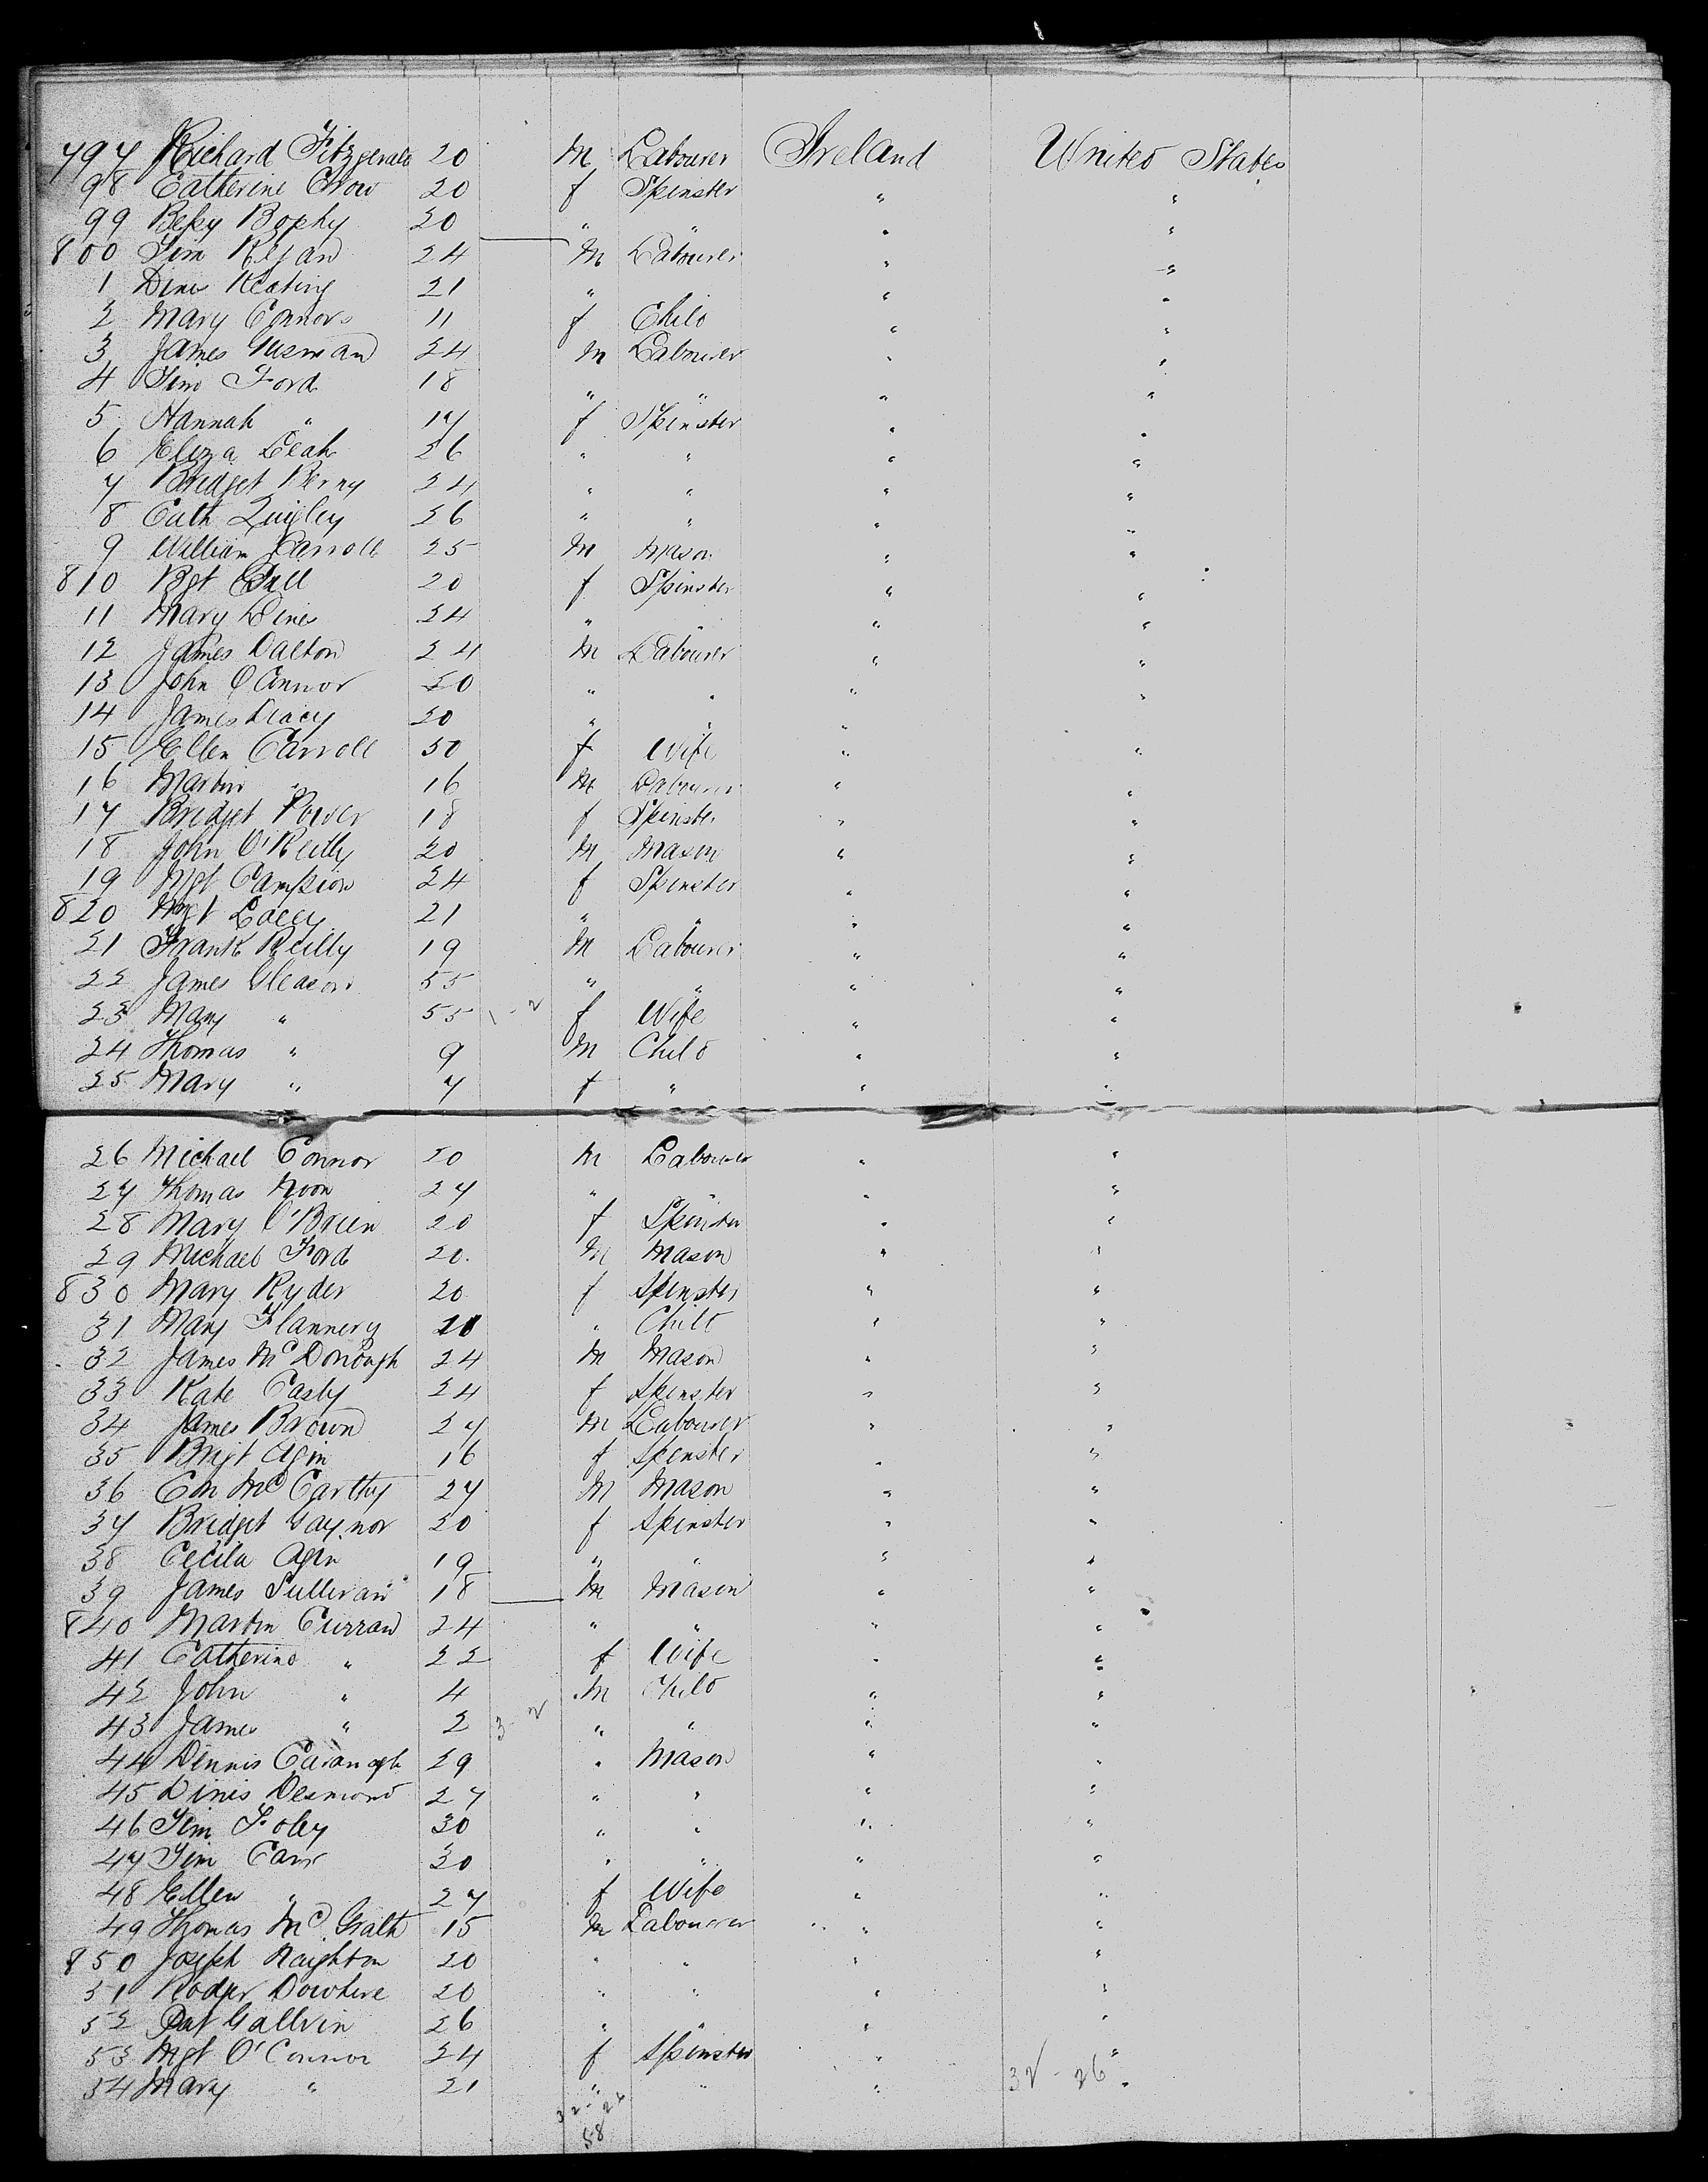 797 Richard Fitzgerald 20 M Labourer Ireland United States
98 Catherine Crow 20 f Spinster " "
99 Bessy Bophy 20 " " " "
800 Tim Regan 24 M Labourer " "
1 Dine Keating 21 " " "
2 Mary Connors 11 f Child " "
3 James Gusman 24 M Labourer " "
4 Tim Ford 18 " " " "
5 Hannah " 17 f Spinster " "
6 Eliza Leah 26 " " " "
7 Bridget Berny 24 " " " "
8 Cath Quigley 26 " " " "
9 William Carroll 25 M Mason " "
810 Bgt Gall 20 f Spinster " "
11 Mary Dines 24 " " " "
12 James Dalton 24 M Labourer " "
13 John O'Connor 20 " " " "
14 James Deacy 20 " " "
15 Ellen Carroll 50 f Wife " "
16 Martin " 16 M Labourer " "
17 Bridget Power 18 f Spinster " "
18 John O'Reilly 20 M Mason " "
19 Mgt Campion 24 f Spinster " "
820 Mgt Lacey 21 " " " "
21 Frank Reilly 19 M Labourer " "
22 James Gleason 55 " " " "
23 Mary " 55 1-2 f Wife " "
24 Thomas " 9 M Child " "
25 Mary " 7 f " " "
26 Michael Connor 20 M Labourer " "
27 Thomas Noon 27 " " " "
28 Mary O'Brien 20 f Spinster " "
29 Michael Ford 20 M Mason " "
830 Mary Ryder 20 f Spinster " "
31 Mary Flannery " Child " "
32 James McDonough 24 M Mason " "
33 Kate Casly 24 f Spinster " "
34 James Brown 27 M Labourer " "
35 Brigt Agin 16 f Spinster " "
36 Con McCarthy 27 M Mason " "
37 Bridget Gaynor 20 f Spinster " "
38 Cecila Agin 19 " " " "
39 James Sullivan 18 M Mason " "
840 Martin Curran 24 " " " "
41 Catherine " 22 f Wife " "
42 John " 4 M Child " "
43 James " 2 3-2 " " " "
44 Dennis Cavanagh 29 " Mason " "
45 Dinis Desmond 27 " " " "
46 Tim Foley 30 " " " "
47 Tim Carr 30 " " " "
48 Ellen " 27 f Wife " "
49 Thomas McGrath 15 M Labourer " "
850 Joseph Naughton 20 " " " "
51 Rodger Dowhire 20 " " " "
52 Pat Gallvin 26 " " " "
53 Mgt O'Connor 24 f Spinster " "
54 Mary " 21 " " " "
32 - 26
32-26
58